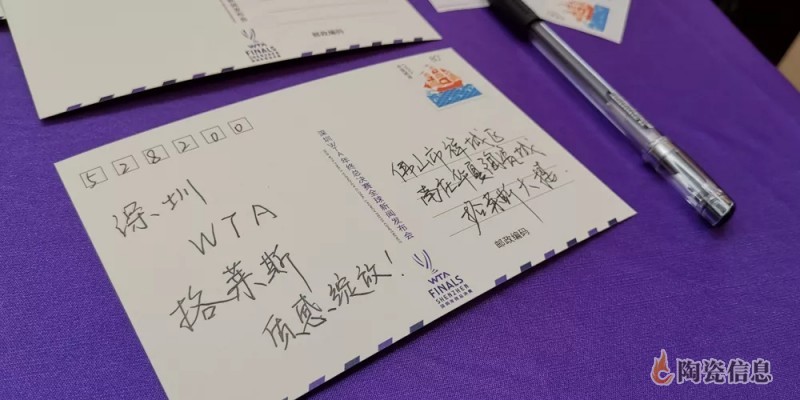 WTA
FINALS
邮政编码
528200
深圳
WTA
格莱斯
质感,绽放!
深圳WTA年终总决赛全球新闻发布会
80
佛山市禅城区
南庄华夏陶瓷城
格莱斯大楼
邮政编码
WTA
FINALS
SHENZHEN
陶瓷信息